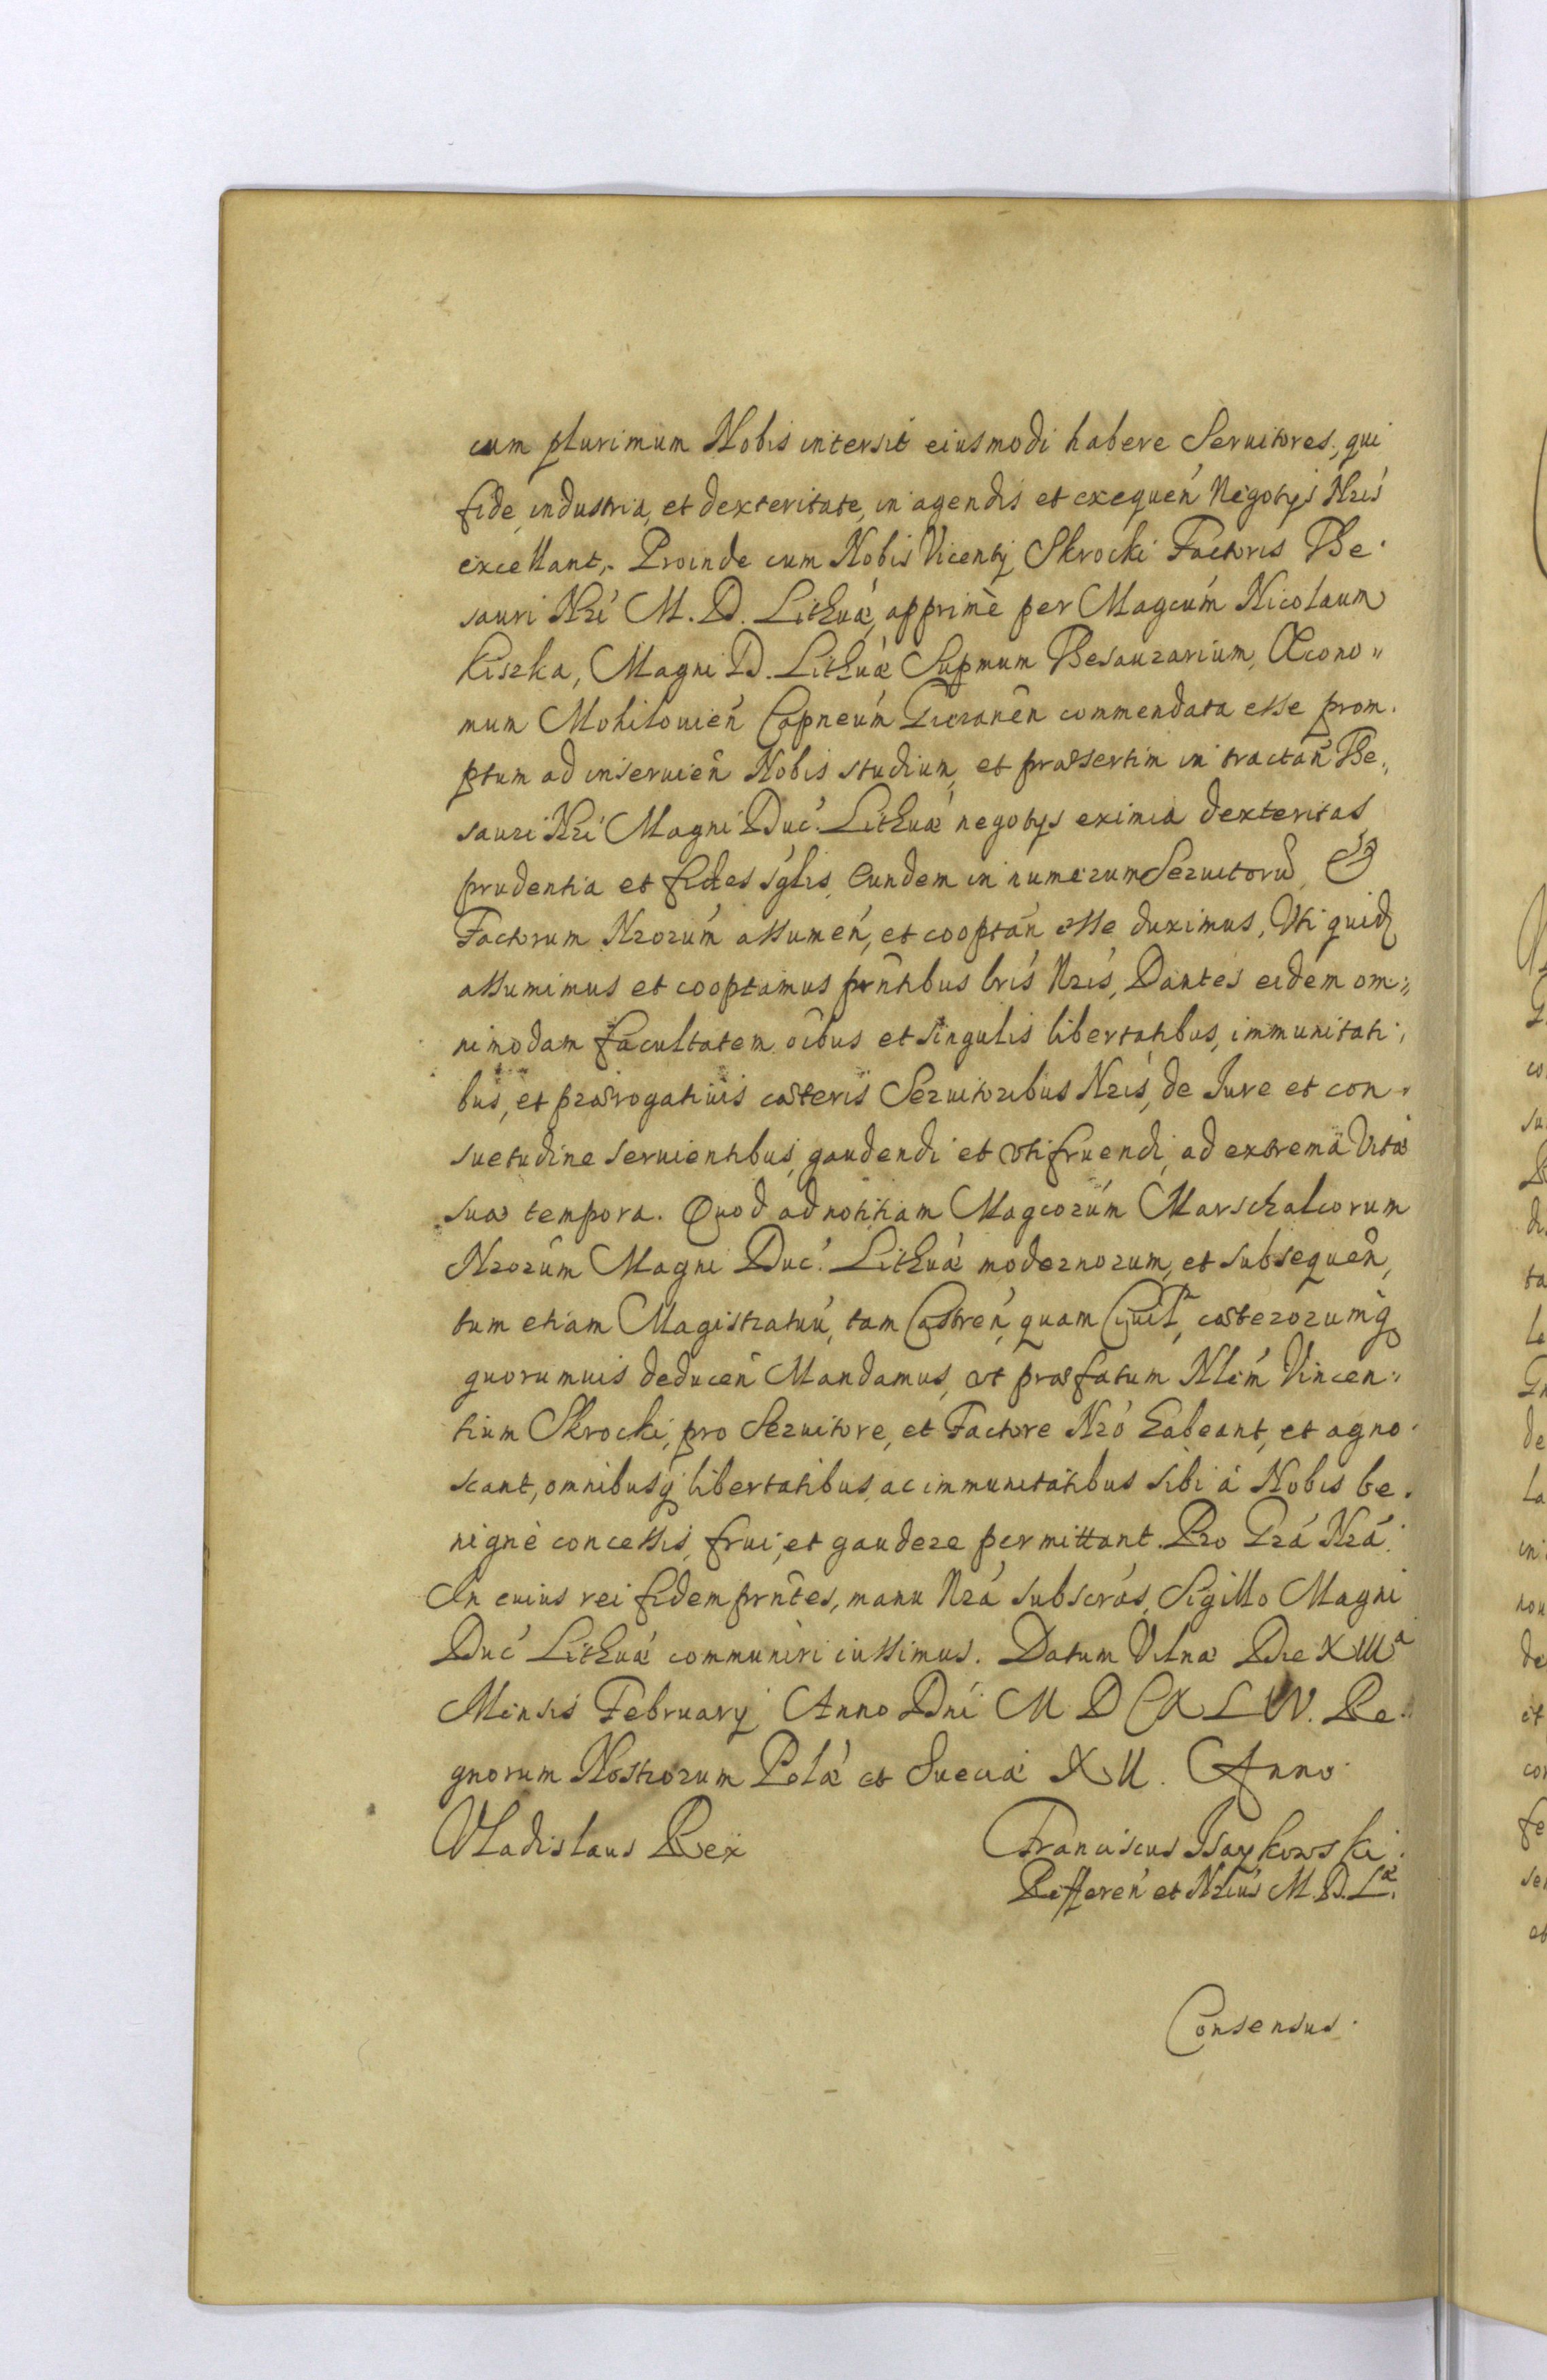 cum plurimum Nobis intersit eiusmodi habere Seruitores, qui
fide, industria, et dexteritate, in agendis et exequeń Negotys Nrís
excellant. Proinde cum Nobis Vicentij Skrocki Factoris The-
sauri Nrí M. D. Lithuæ, apprimè per Magcúm Nicolaum
Kiszka, Magni D. Lithuæ Supmum Thesaurarium, Œcono„
mum Mohilouień Capneúm commendata esse prom.
ptum ad inseruień Nobis studium, et præsertim in tractań The„
sauri Nrí Magni Duć. Lithuæ negotys eximia dexteritas
prudentia et fides sǵlis, Eundem in numerum Seruitorū, &
Factorum Nrorúm assumeń, et cooptań esse duximus, Uti quid
assumimus et cooptamus prńtibus lrís Nrís, Dantes eidem om„
nimodam facultatem oíbus et singulis libertatibus, immunitati,
bus, et prærogatiuis cæteris Seruitoribus Nrís, de Jure et con-
suetudine seruientibus, gaudendi et vtifruendi, ad extrema Vitæ
suæ tempora. Quod ad notitiam Magcorúm Marschalcorum
Nrorúm Magni Duć. Lithuæ modernorum, et subsequeń,
tum etiam Magistratuú, tam Castreń, quam Ciuil, cæterorumq
quorumuis deduceń Mandamus, vt præfatum Nlém Vincen„
tium Skrocki, pro Seruitore, et Factore Nró habeant, et agno-
scant, omnibusq libertatibus, ac immunitatibus sibi à Nobis be.
nignè concessis, frui, et gaudere permittant. Pro Grá Nrá.
In cuius rei fidem prńtes, manu Nrá subscrás, Sigillo Magni
Duć Lithuæ communiri iussimus. Datum Vilnæ Die XIIIa
Mensis February Anno Dní M D C X L IV. Re„
gnorum Nostrorum Polæ et Sueciæ XII. Anno
Vladislaus Rex Franciscus Isaykowski
Refferéń et Nrius M. D. Læ.
Consensus.